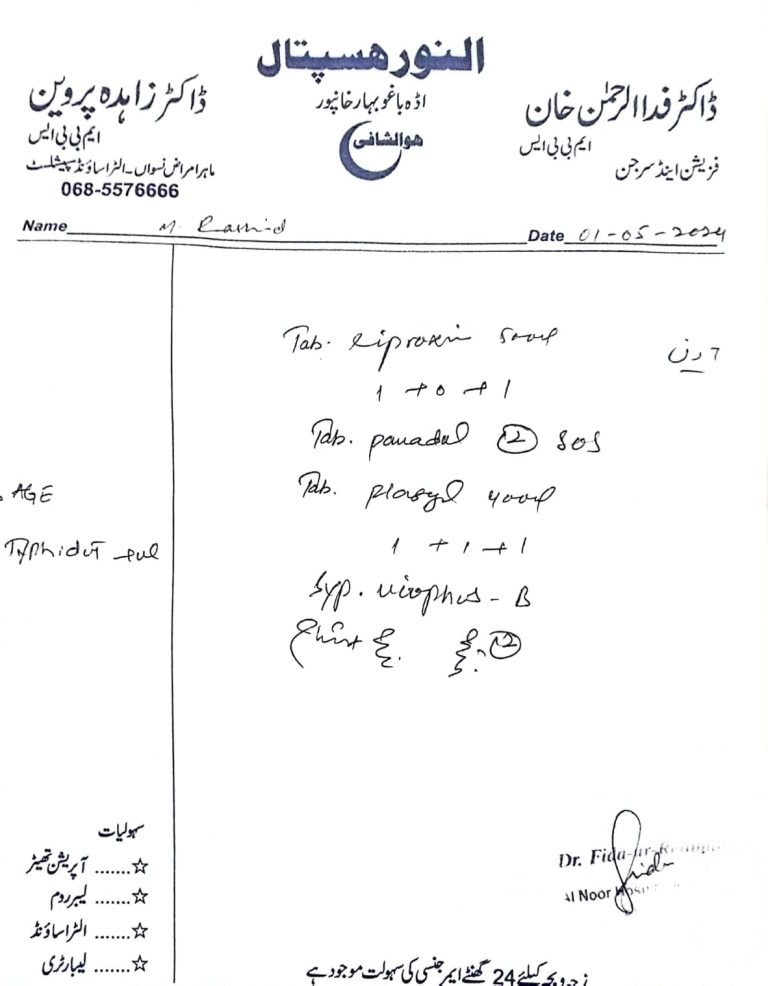 النور هسپتال
ڈاکٹر زاہدہ پروین
اڈہ باغو بہار خانپور
ڈاکٹر فدا الرحمٰن خان
ایم بی بی ایس
ھوالشافی
ایم بی بی ایس
ماہر امراض نسواں۔الٹراساؤنڈ سپیشلسٹ
فزیشن اینڈ سرجن
068-5576666
Name M. Rashid
Date 01-05-2024
Tab.
7 دن
1 + 0 + 1
Tab. panadol ② SOS
Tab.
AGE
1 + 1 + 1
Typhidot +ve
Syp. - B
②
سہولیات
☆....... آپریشن تھیٹر
☆....... لیبر روم
☆....... الٹراساؤنڈ
☆....... لیبارٹری
Dr. Fida-ur-
Al Noor
زچہ و بچہ کیلئے 24 گھنٹے ایمرجنسی کی سہولت موجود ہے